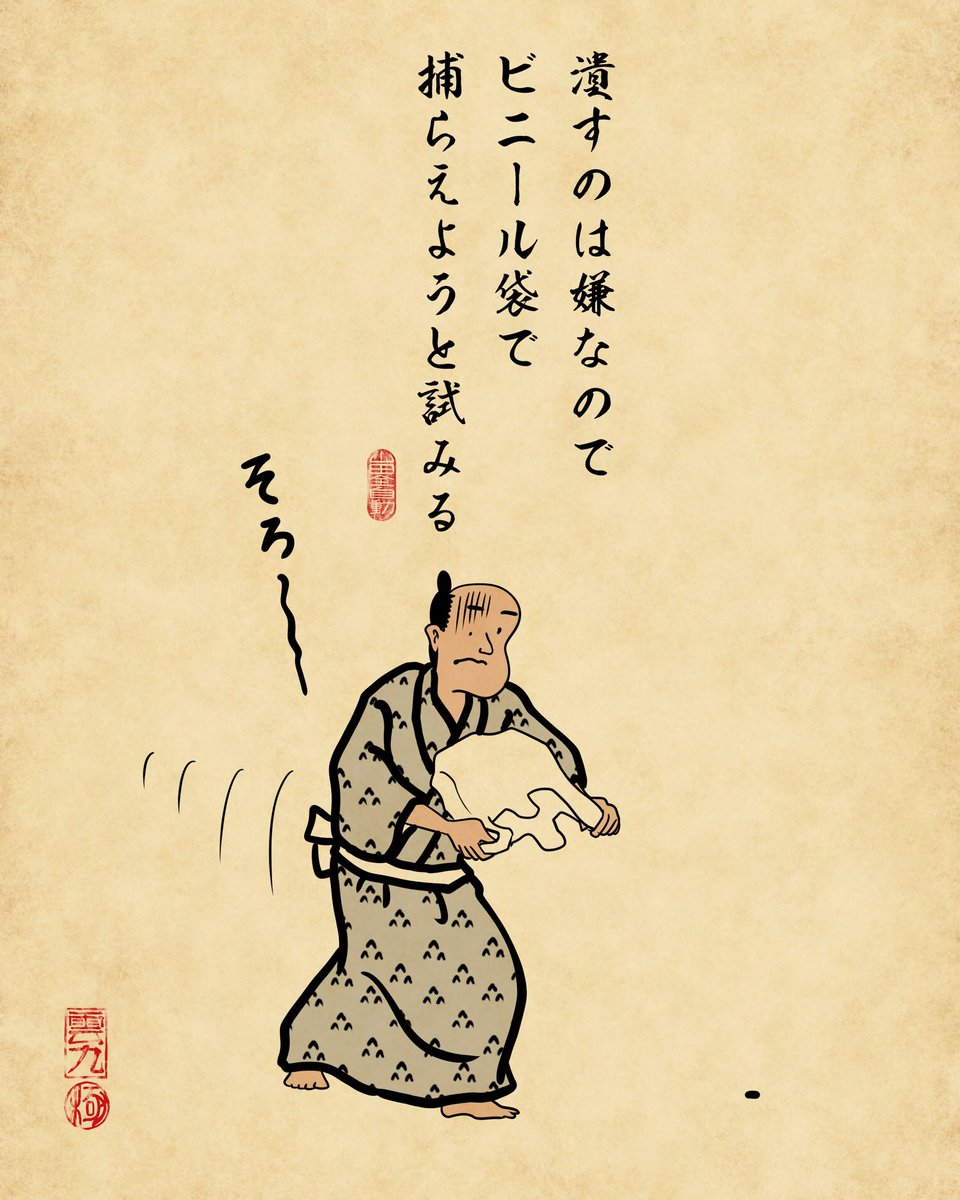 潰すのは嫌なので
ビニール袋で
捕らえようと試みる
そろ〜